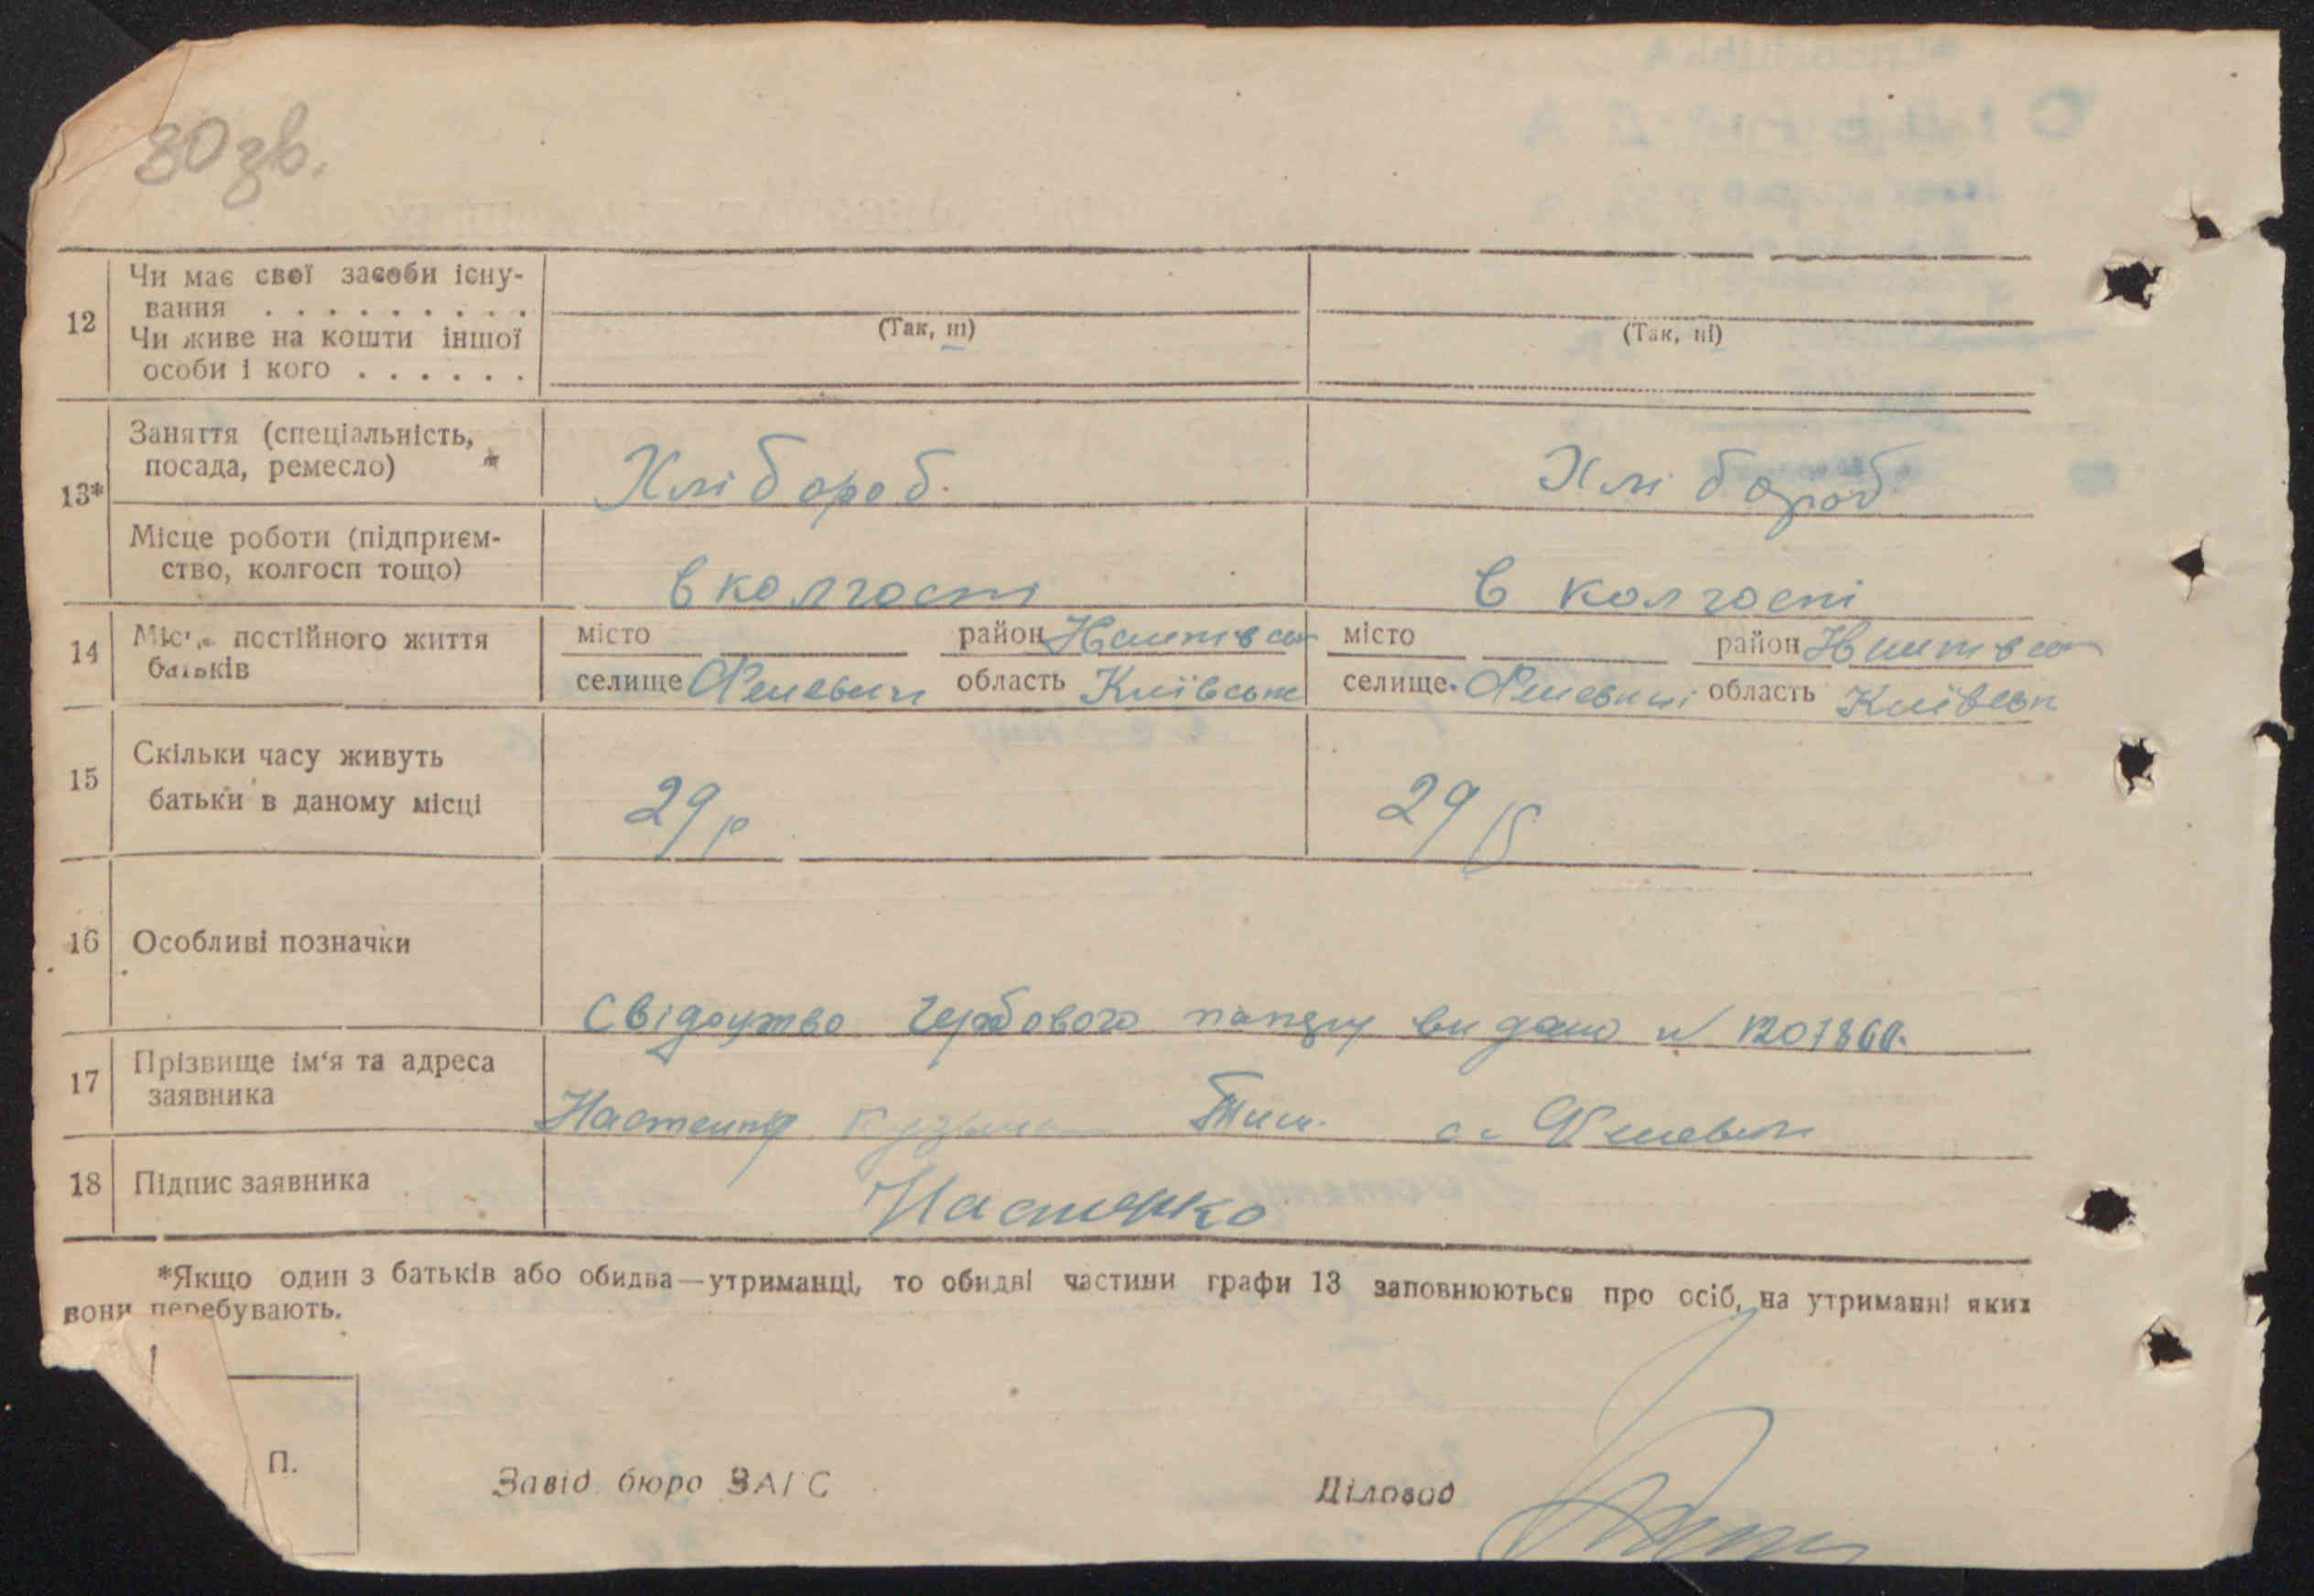 80 зв.
12 Чи має свої засоби існу-
вання . . . . . . . . .
(Так, ні) (Так, ні)
Чи живе на кошти іншої
особи і кого . . . . . .
13* Заняття (спеціальність,
посада, ремесло) Хлібороб. Хлібороб.
Місце роботи (підприєм-
ство, колгосп тощо) в колгоспі в колгоспі
14 Місце постійного життя місто район місто район
батьків селище область Київськ селище область Київськ
15 Скільки часу живуть
батьки в даному місці 29 р 29 р
16 Особливі позначки
Свідоцтво Гербового паперу видано № 1207860.
17 Прізвище ім'я та адреса
заявника Кузьма Тим. с.
18 Підпис заявника Настенко
*Якщо один з батьків або обидва—утриманці, то обидві частини графи 13 заповнюються про осіб, на утриманні яких
вони перебувають.
П.
Завід. бюро ЗАГС Діловод